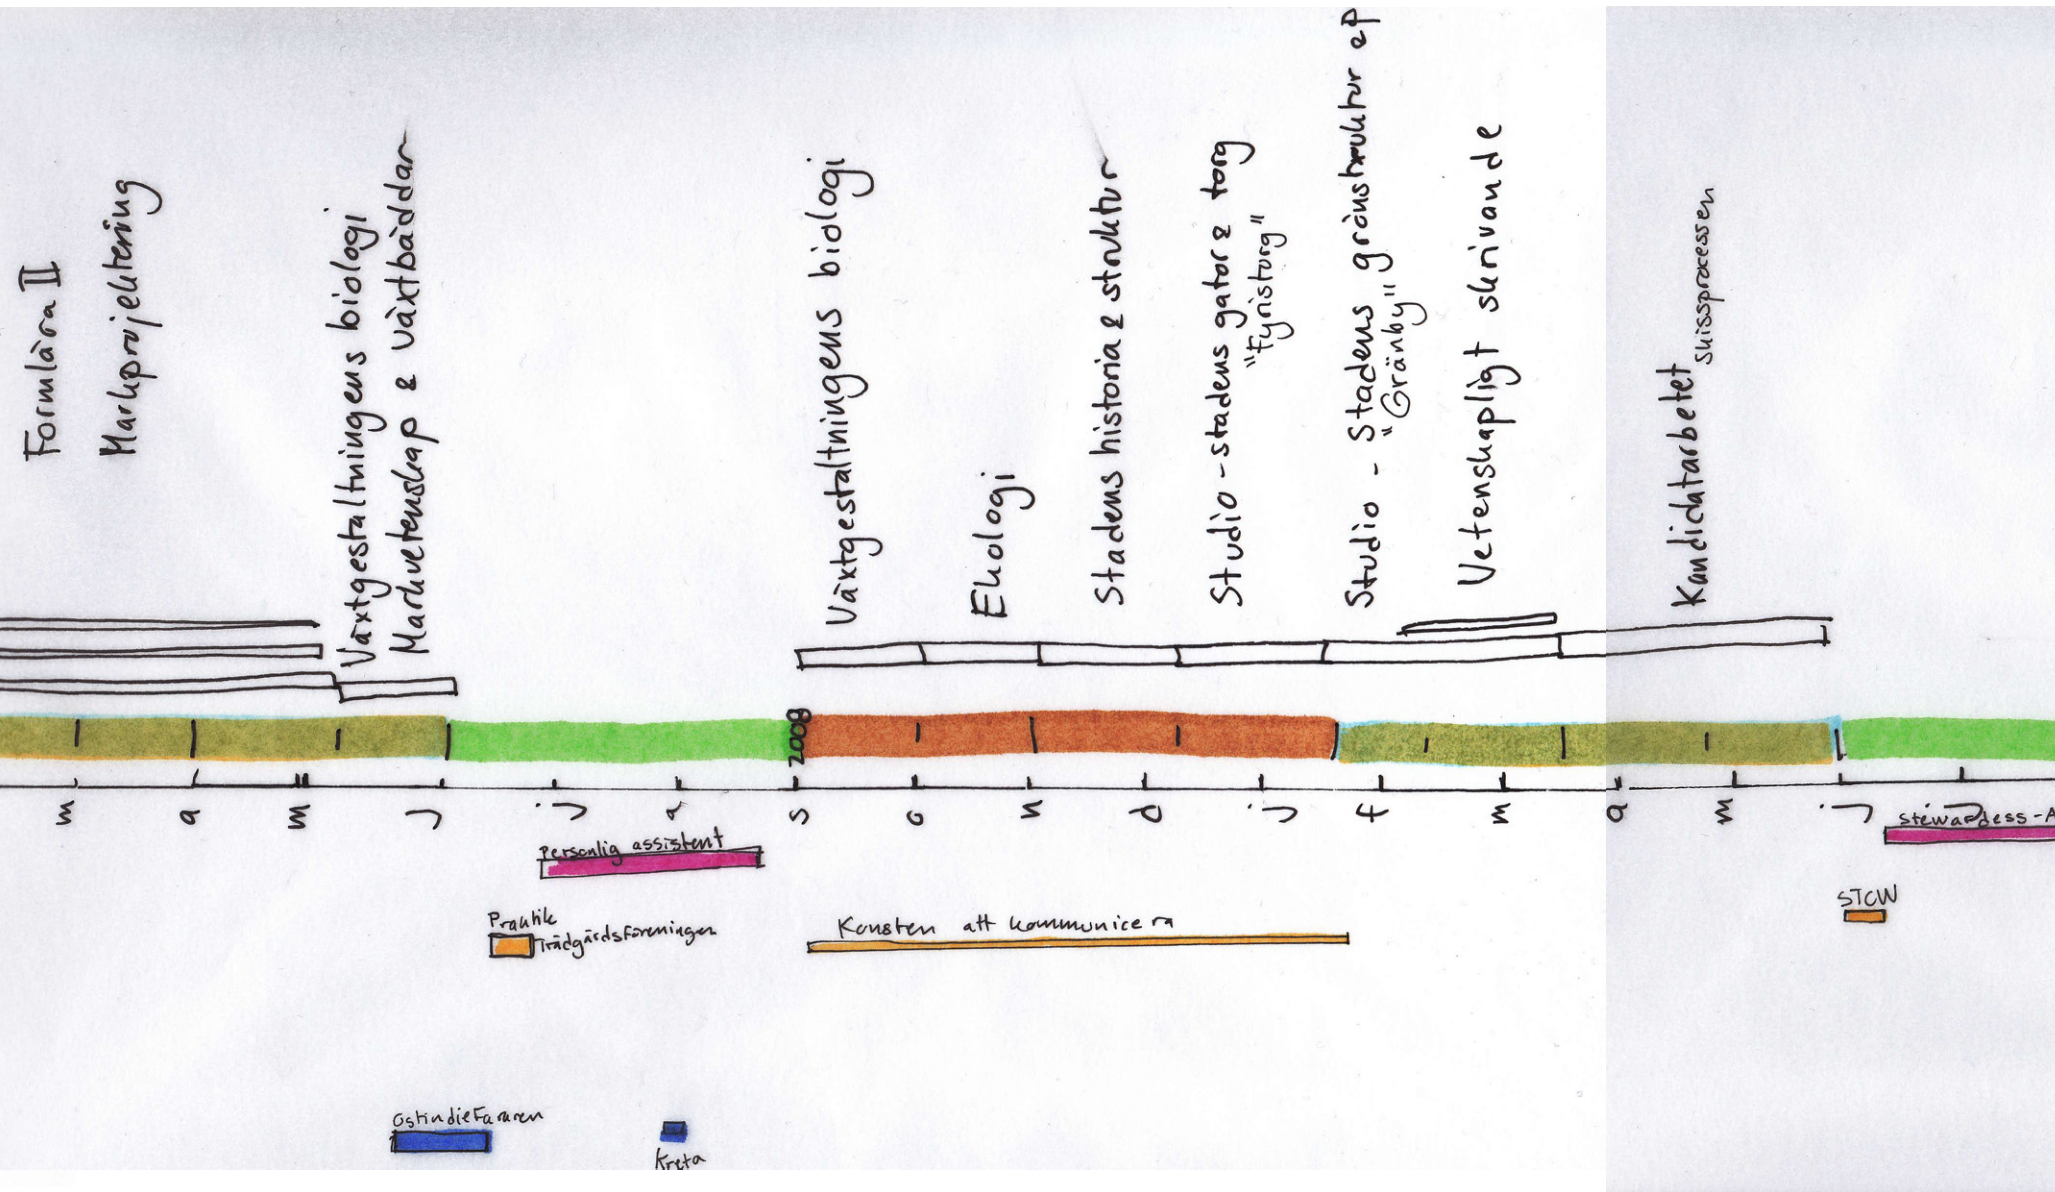 Formlära II
Markprojektering
Växtgestaltningens biologi
Markvetenskap & växtbäddar
Växtgestaltningens biologi
Ekologi
Stadens historia & struktur
Studio - stadens gator & torg
"Fyristorg"
Studio - Stadens grönstruktur ep
"Gränby"
Vetenskapligt skrivande
Kandidatarbetet
Skissprocessen
2008
m a m j j a s o n d j f m a m j j
Personlig assistent
Stewardess - A
Praktik
Trädgårdsföreningen
Konsten att kommunicera
STCW
Ostindiefararen
Kreta